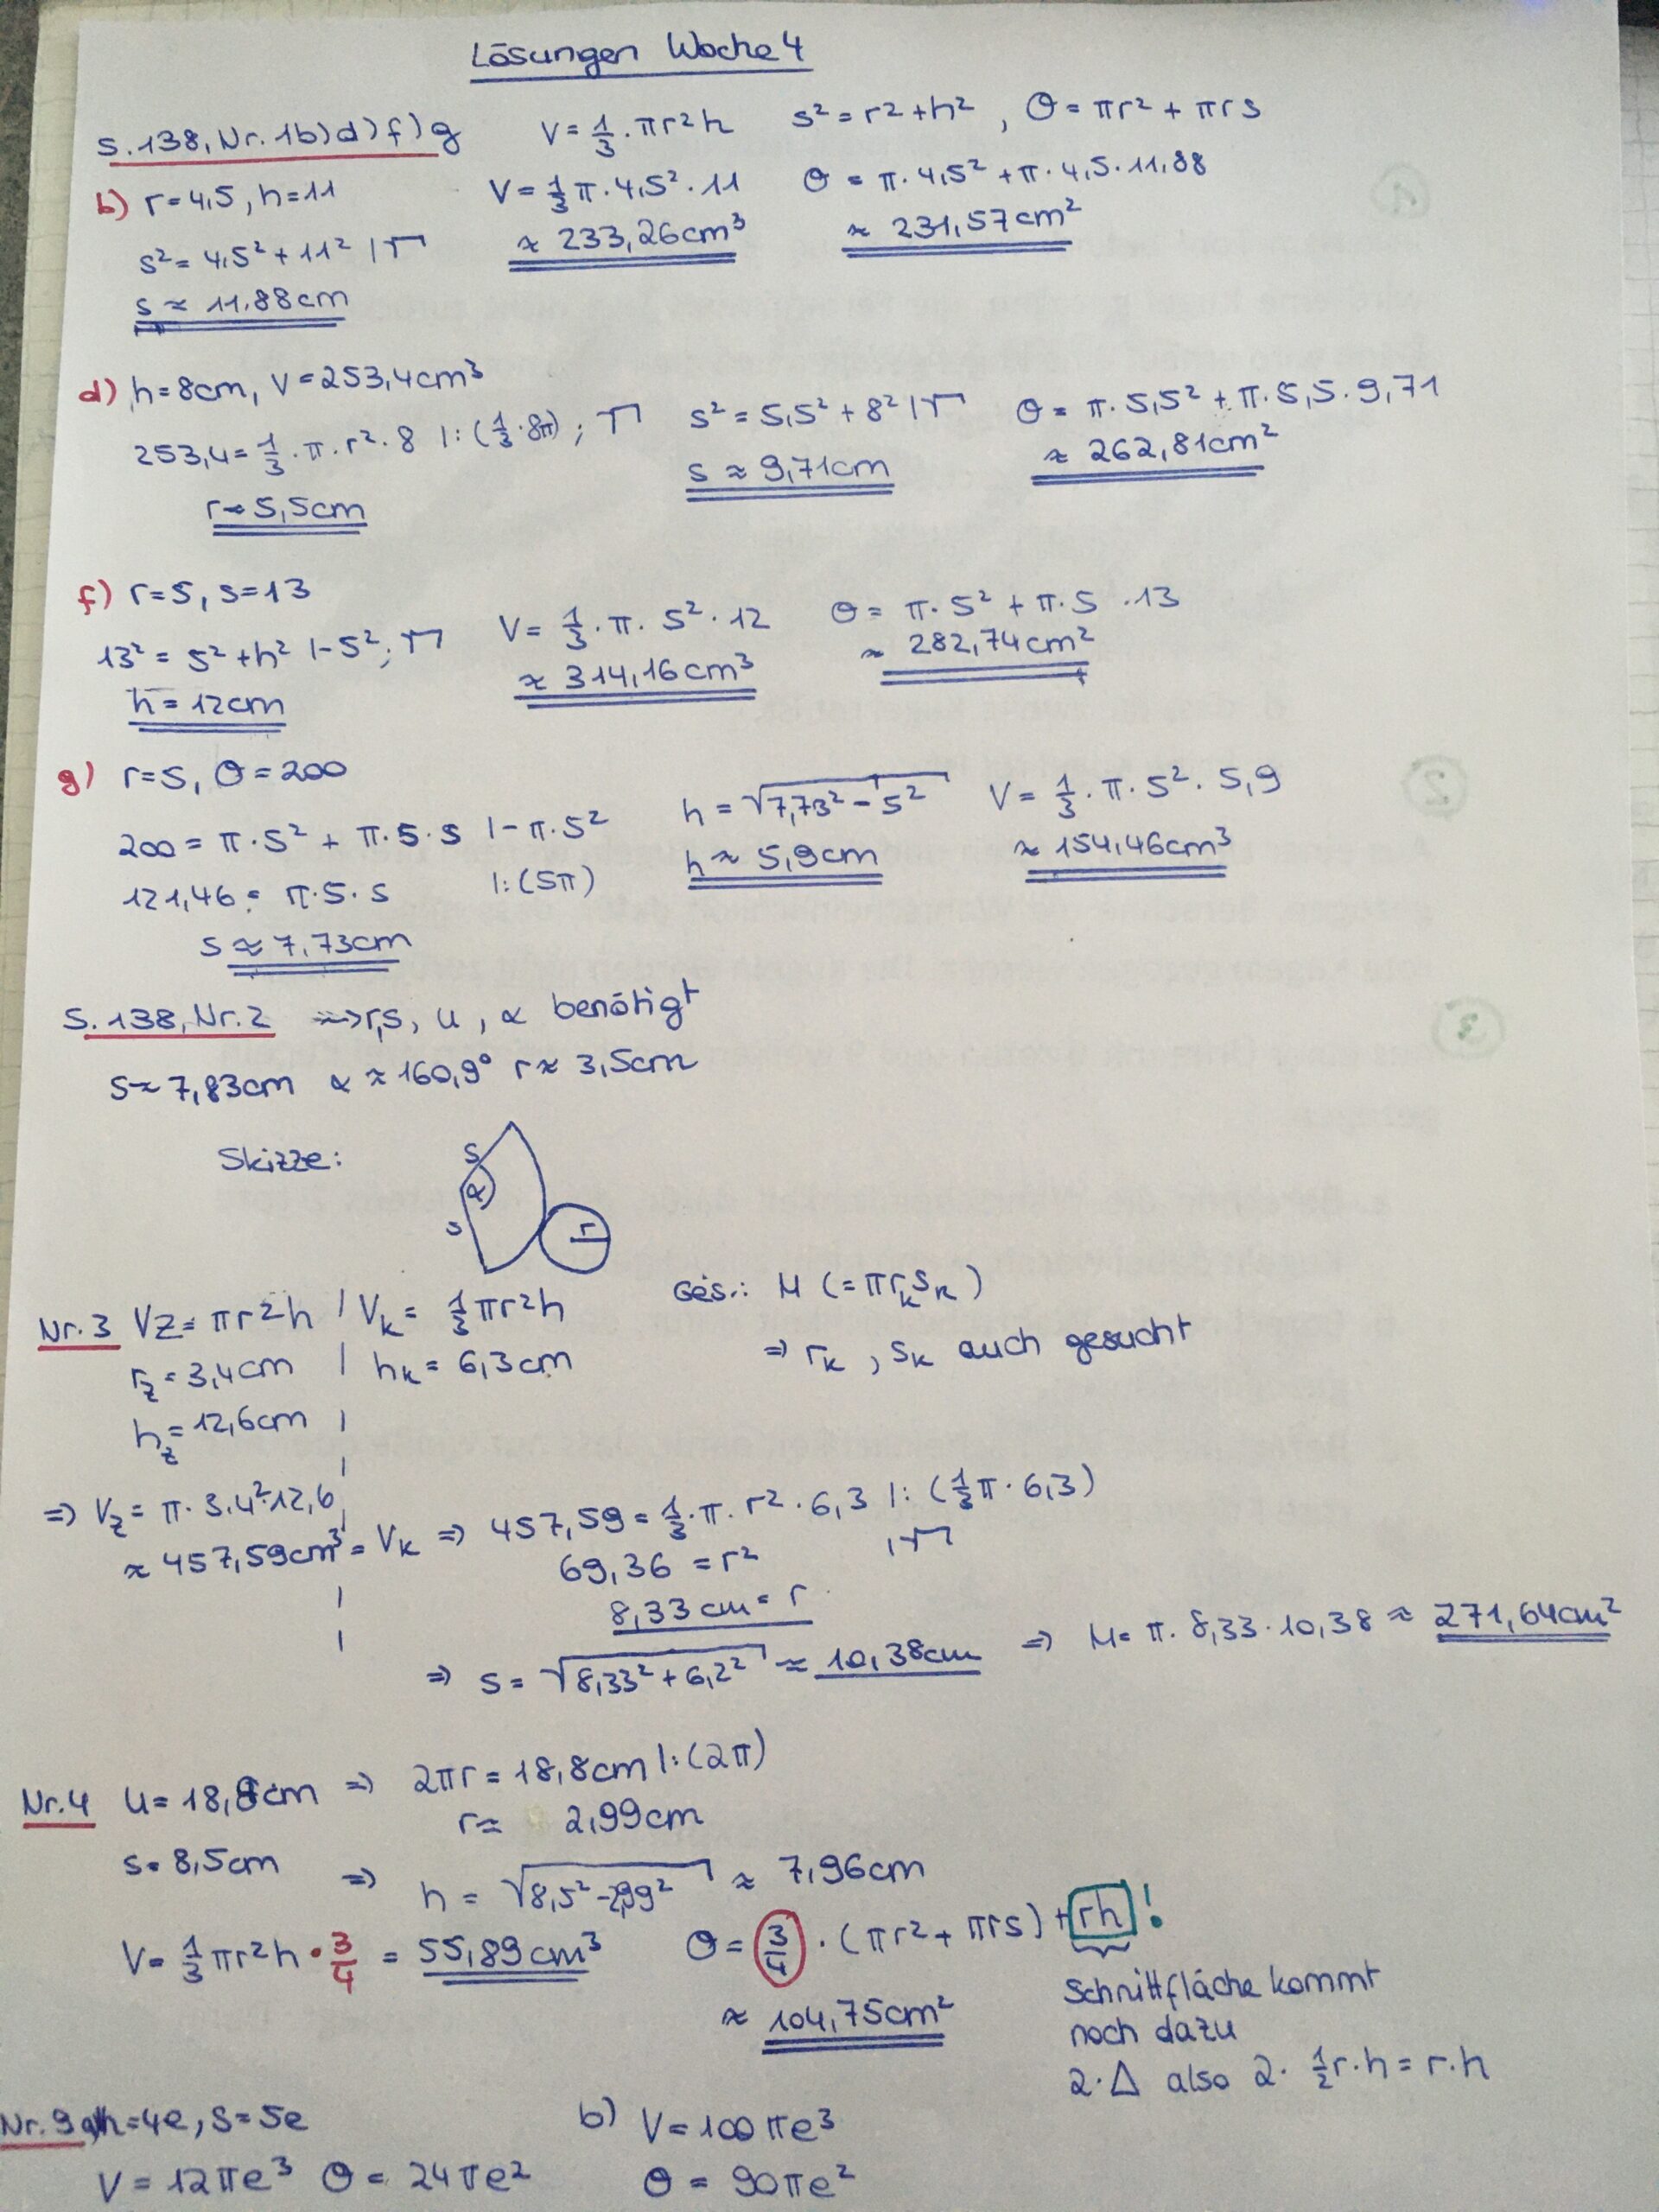 Lösungen Woche 4
S. 138, Nr. 1b)d)f)g V = 1/3 · πr²h s² = r² + h² , O = πr² + πrs
b) r = 4,5 , h = 11 V = 1/3 π · 4,5² · 11 O = π · 4,5² + π · 4,5 · 11,88
s² = 4,5² + 11² | √ ≈ 233,26cm³ ≈ 231,57cm²
s ≈ 11,88cm
d) h = 8cm, V = 253,4cm³
253,4 = 1/3 · π · r² · 8 |: (1/3 · 8π) ; √ s² = 5,5² + 8² | √ O = π · 5,5² + π · 5,5 · 9,71
r ≈ 5,5cm s ≈ 9,71cm ≈ 262,81cm²
f) r = 5, s = 13
13² = 5² + h² | - 5² ; √ V = 1/3 · π · 5² · 12 O = π · 5² + π · 5 · 13
h = 12cm ≈ 314,16cm³ ≈ 282,74cm²
g) r = 5, O = 200
200 = π · 5² + π · 5 · s | - π · 5² h = √7,73² - 5² V = 1/3 · π · 5² · 5,9
121,46 = π · 5 · s |: (5π) h ≈ 5,9cm ≈ 154,46cm³
s ≈ 7,73cm
S. 138, Nr. 2 => r,s, u, α benötigt
s ≈ 7,83cm α ≈ 160,9° r ≈ 3,5cm
Skizze:
s
α
s
r
Nr. 3 VZ = πr²h | Vk = 1/3 πr²h Ges.: M (= πrksk)
rz = 3,4cm | hk = 6,3cm => rk , sk auch gesucht
hz = 12,6cm
=> Vz = π · 3,4² · 12,6
≈ 457,59cm³ = Vk => 457,59 = 1/3 · π · r² · 6,3 |: (1/3 π · 6,3)
69,36 = r² , √
8,33cm = r
=> s = √8,33² + 6,2² ≈ 10,38cm => M = π · 8,33 · 10,38 ≈ 271,64cm²
Nr. 4 u = 18,8cm => 2πr = 18,8cm |: (2π)
r ≈ 2,99cm
s = 8,5cm => h = √8,5² - 2,99² ≈ 7,96cm
V = 1/3 πr²h · 3/4 = 55,89cm³ O = 3/4 · (πr² + πrs) + rh !
≈ 104,75cm²
Schnittfläche kommt
noch dazu
2 · Δ also 2 · 1/2 r · h = r · h
Nr. 9 a) h = 4e, s = 5e b) V = 100πe³
V = 12πe³ O = 24πe² O = 90πe²